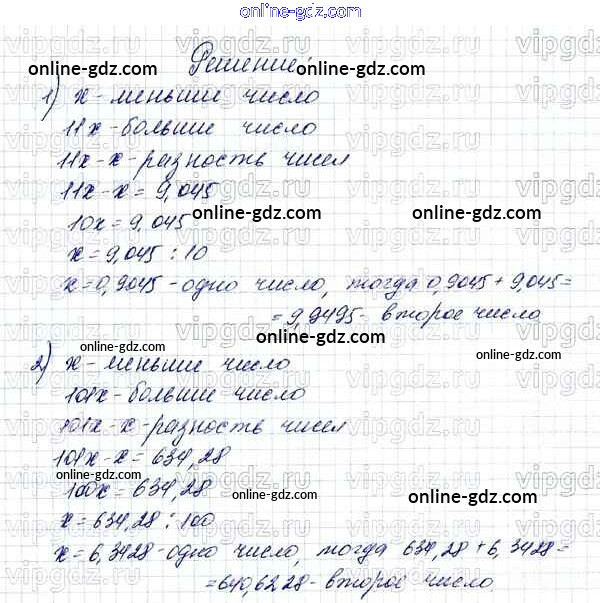 online-gdz.com
Решение.
online-gdz.com online-gdz.com
1) х - меньши число
11х - больши число
online-gdz.com
11х - х - разность чисел
11х - х = 9,045
10х = 9,045
online-gdz.com
х = 9,045 : 10
х = 0,9045 - одно число, тогда 0,9045 + 9,045 =
= 9,9495 - второе число
online-gdz.com online-gdz.com
2) х - меньши число
101х - больши число
online-gdz.com
101х - х - разность чисел
101х - х = 634,28
online-gdz.com
100х = 634,28
online-gdz.com
х = 634,28 : 100
х = 6,3428 - одно число, тогда 634,28 + 6,3428 =
= 640,6228 - второе число.
online-gdz.com